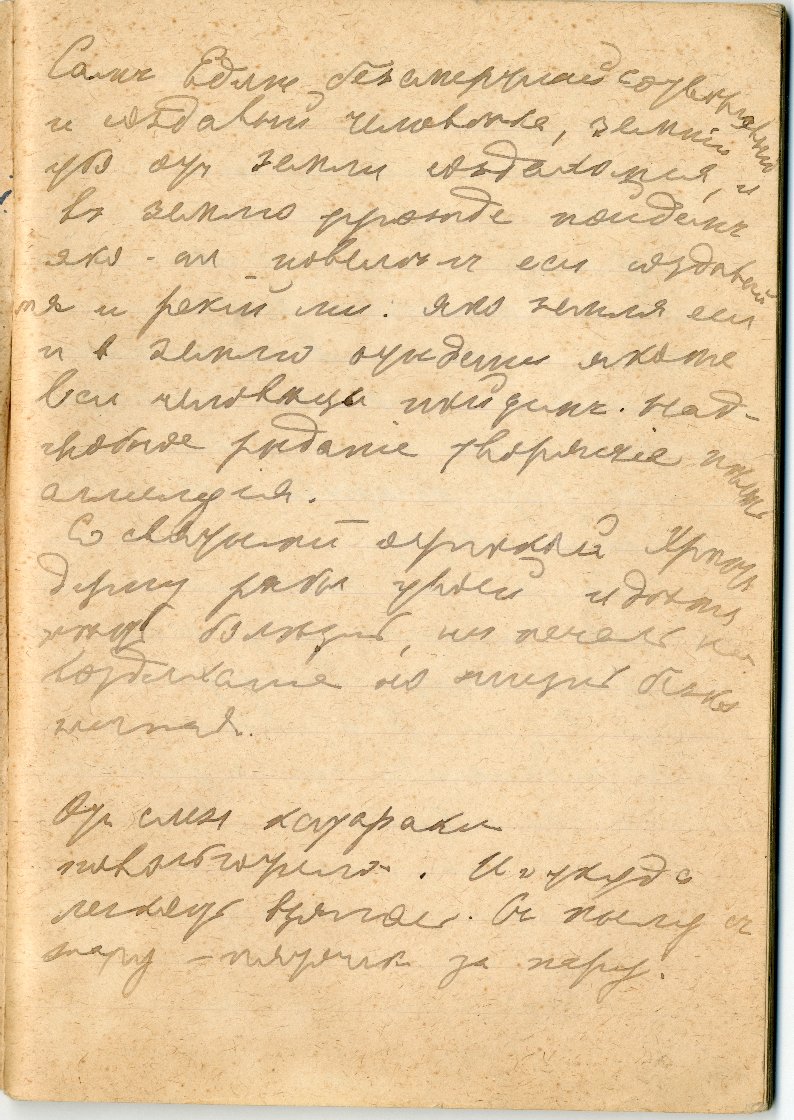 Самъ Един безсмертный сотворивый
и создавый человека, земнiи
убо отъ земли создахомся, и
въ землю туюжде пойдемъ
яко - же повелелъ еси создавый
мя и рекiй ми. яко земля еси
и в землю отыдеши яможе
вси человецы пойдемъ. над-
гробное рыданiе творящiе песнь
аллилуiя.
Со святыми упокой Христе
душу рабы твоей идеже
несть болезнь, ни печаль ни
воздыханiе но жизнь безко
нечная.
От слез катараки
. И откуда
взялась. Съ пылу съ
жару – пятачок за пару.